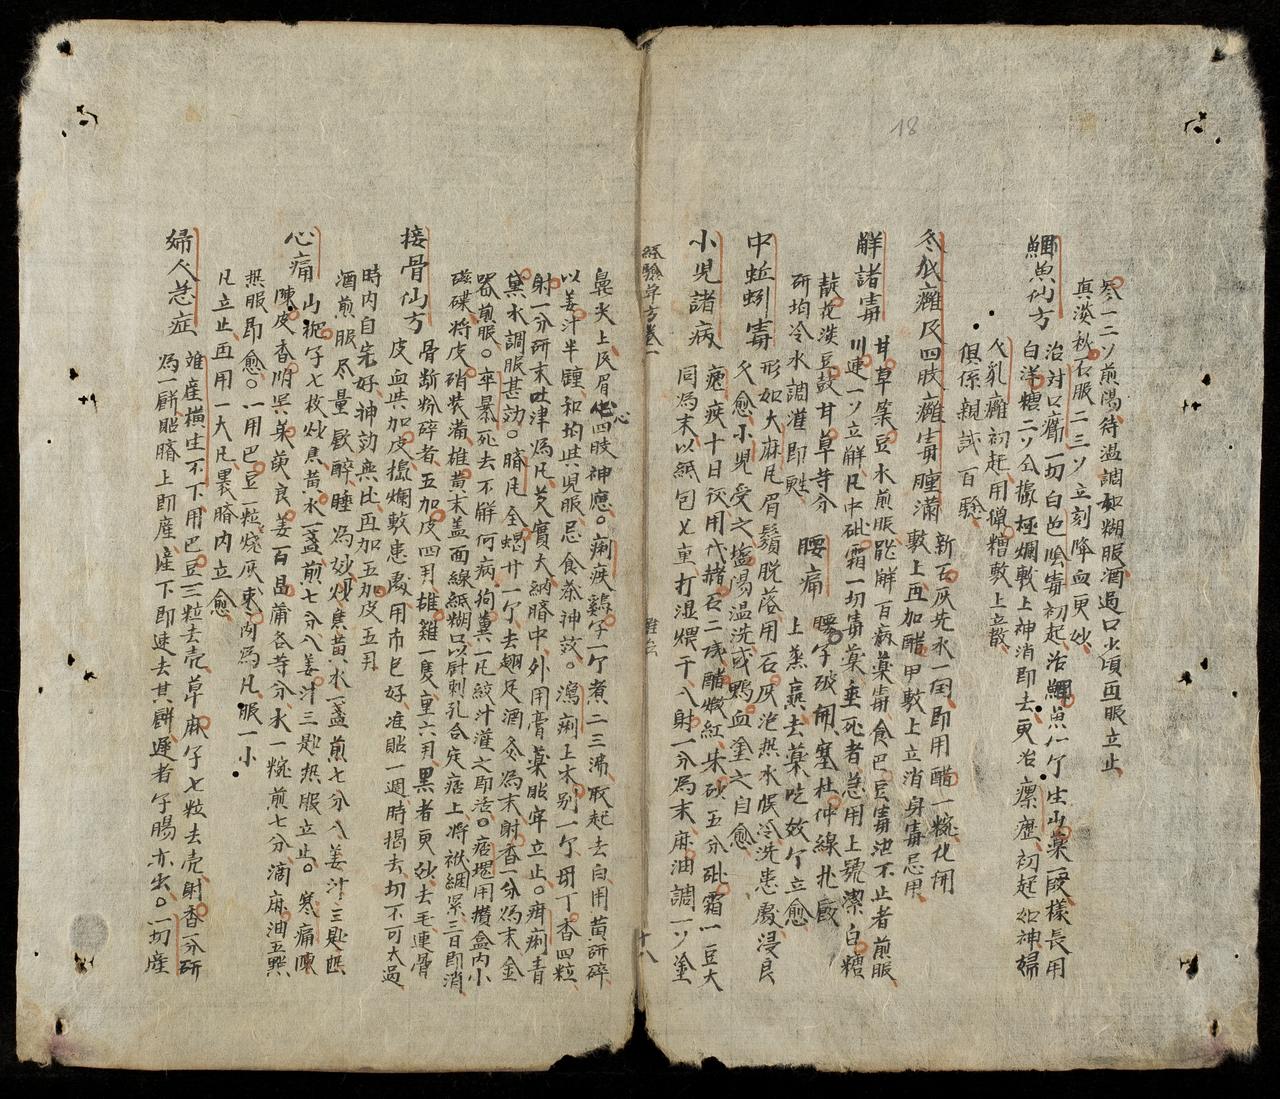 18
參一二ソ煎湯待溫調如糊服酒過口少頃再服立止
真淡秋石服二三ソ立刻降血更妙
鯽魚仙方
治対口瘡一切白色陰毒初起活鯽魚一个生山藥一段樣長用
白洋糖二ソ仝搗極爛敷上神消即去更治瘰癧初起如神婦
人乳癰初起用獵糟敷上立散
俱係親試百驗
冬瓜癰及四肢癰毒腫滿
新石灰先水一囯即用醋一椀化開
敷上再加醋甲敷上立消身毒忌用
解諸毒
甘草菉豆水煎服能解百病藥毒食巴豆毒泄不止者煎服
川連一ソ立解凡中砒霜一切毒藥垂死者急用上號潔白糖
靛花淡豆鼓甘草等分
研均冷水調灌即甦
腰痛
腰子破開塞杜仲線扎嚴
上蒸熏去藥吃效个立愈
中蚯蚓毒
形如大麻凡眉鬚脫落用石灰泡热水候冷洗患處浸良
久愈小児受之塩湯温洗或鴨血塗之自愈
小児諸病
瘧疾十日後用代赭石二戔醋煅紅朱砂五分砒霜一豆大
同為末以紙包七重打湿煨干入射一分為末麻油調一ソ塗
經驗草方卷一
十八
鼻夾上及眉心四肢神應○痢疾鷄子一个煮二三沸取起去白用黄研碎
以姜汁半鍾和均與児服忌食茶神效○瀉痢上木别一个毋丁香四粒
射一分研末吐津為凡芡實大納臍中外用膏藥貼牢立止○痢青
黛水調服甚効○臍凡全蝎廿一个去翅足酒灸為末射香一分為末金
器煎服○卒暴死去不觧何病狗糞一凡絞汁灌之即活○痞塊用攢盒内小
磁碟将皮硝裝滿雄黄末盖面線紙糊口以針刺孔合定痞上将袱綑緊三日即消
接骨仙方
骨断粉碎者五加皮四刄雄雞一隻重六刄黑者更妙去毛連骨
皮血與加皮搗爛敷患處用布包好准貼一週時揭去切不可太過
時内自朱好神効無比再加五加皮五刄
酒煎服尽量歐醉睡為妙
心痛
山梔子七枚炒焦黄水一盞煎七分入姜汁三匙熱服立止○寒痛陳
陳皮香附吳茱萸良姜百昌蒲各等分水一椀煎七分滴麻油五點
热服即愈○一用巴豆一粒燒灰棗肉為凡服一小
凡立止再用一大凡裹臍内立愈
婦人急症
难産横生不下用巴豆三粒去壳草麻子七粒去壳射香一分研
為一餅貼臍上即産産下即速去其餅遲者子腸亦出○一切産